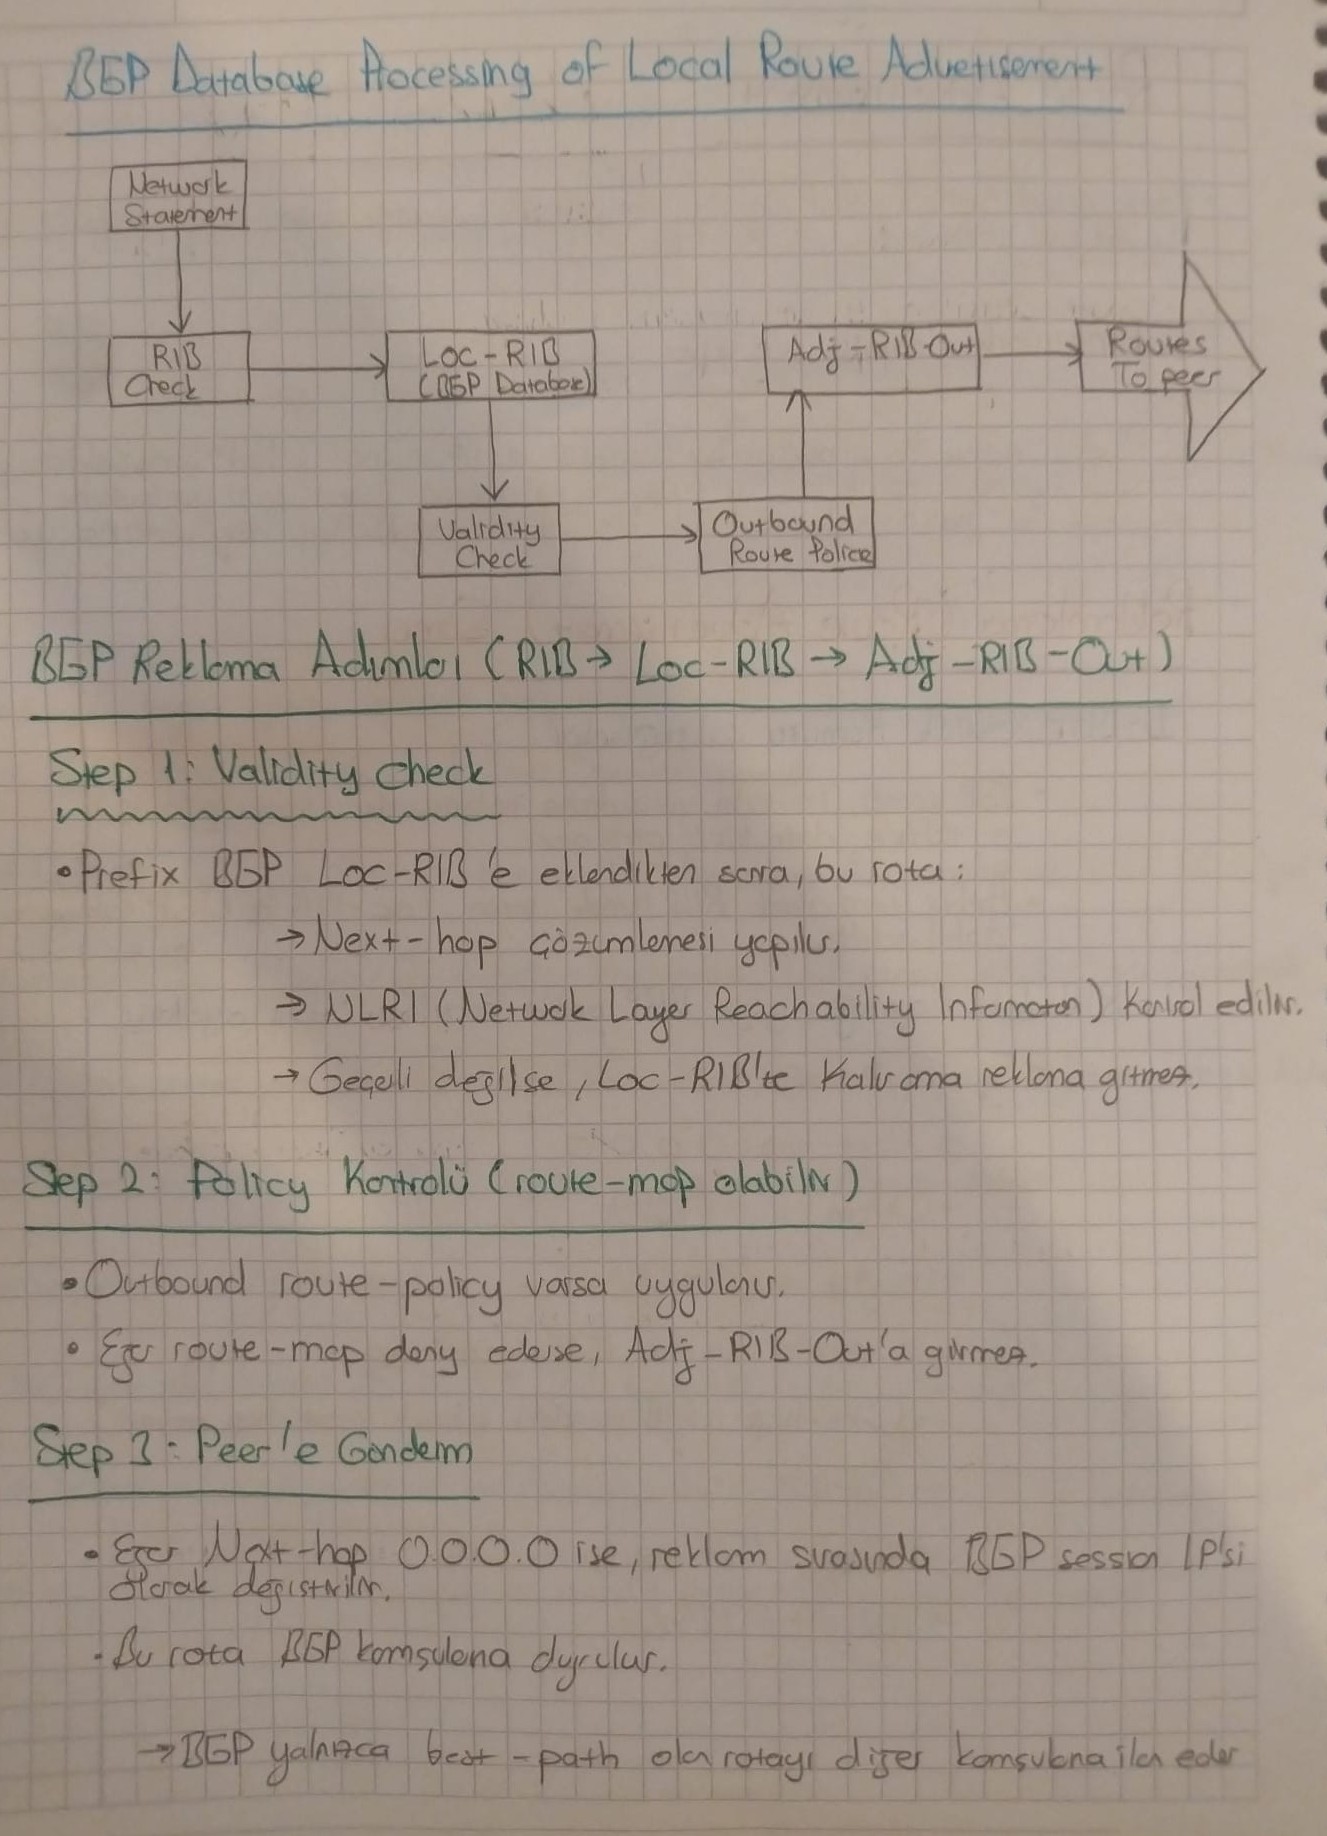 BGP Database Processing of Local Route Advetisement
Network
Statement
RIB
Check
Loc-RIB
(BGP Database)
Adj-RIB-Out
Routes
To peer
Validity
Check
Outbound
Route Police
BGP Reklama Adımları (RIB → Loc-RIB → Adj-RIB-Out)
Step 1: Validity Check
• Prefix BGP Loc-RIB'e eklendikten sonra, bu rota:
→ Next-hop çözümlemesi yapılır.
→ NLRI (Network Layer Reachability Information) Kontrol edilir.
→ Geçerli değilse, Loc-RIB'te Kalır ama reklama gitmez.
Step 2: Policy Kontrolü (route-map olabilir)
• Outbound route-policy varsa uygulanır.
• Eğer route-map deny ederse, Adj-RIB-Out'a girmez.
Step 3: Peer'e Gönderim
• Eğer Next-hop 0.0.0.0 ise, reklam sırasında BGP session IP'si
olarak değiştirilir.
• Bu rota BGP komşularına duyurulur.
→ BGP yalnızca best-path olan rotayı diğer komşularına ilan eder